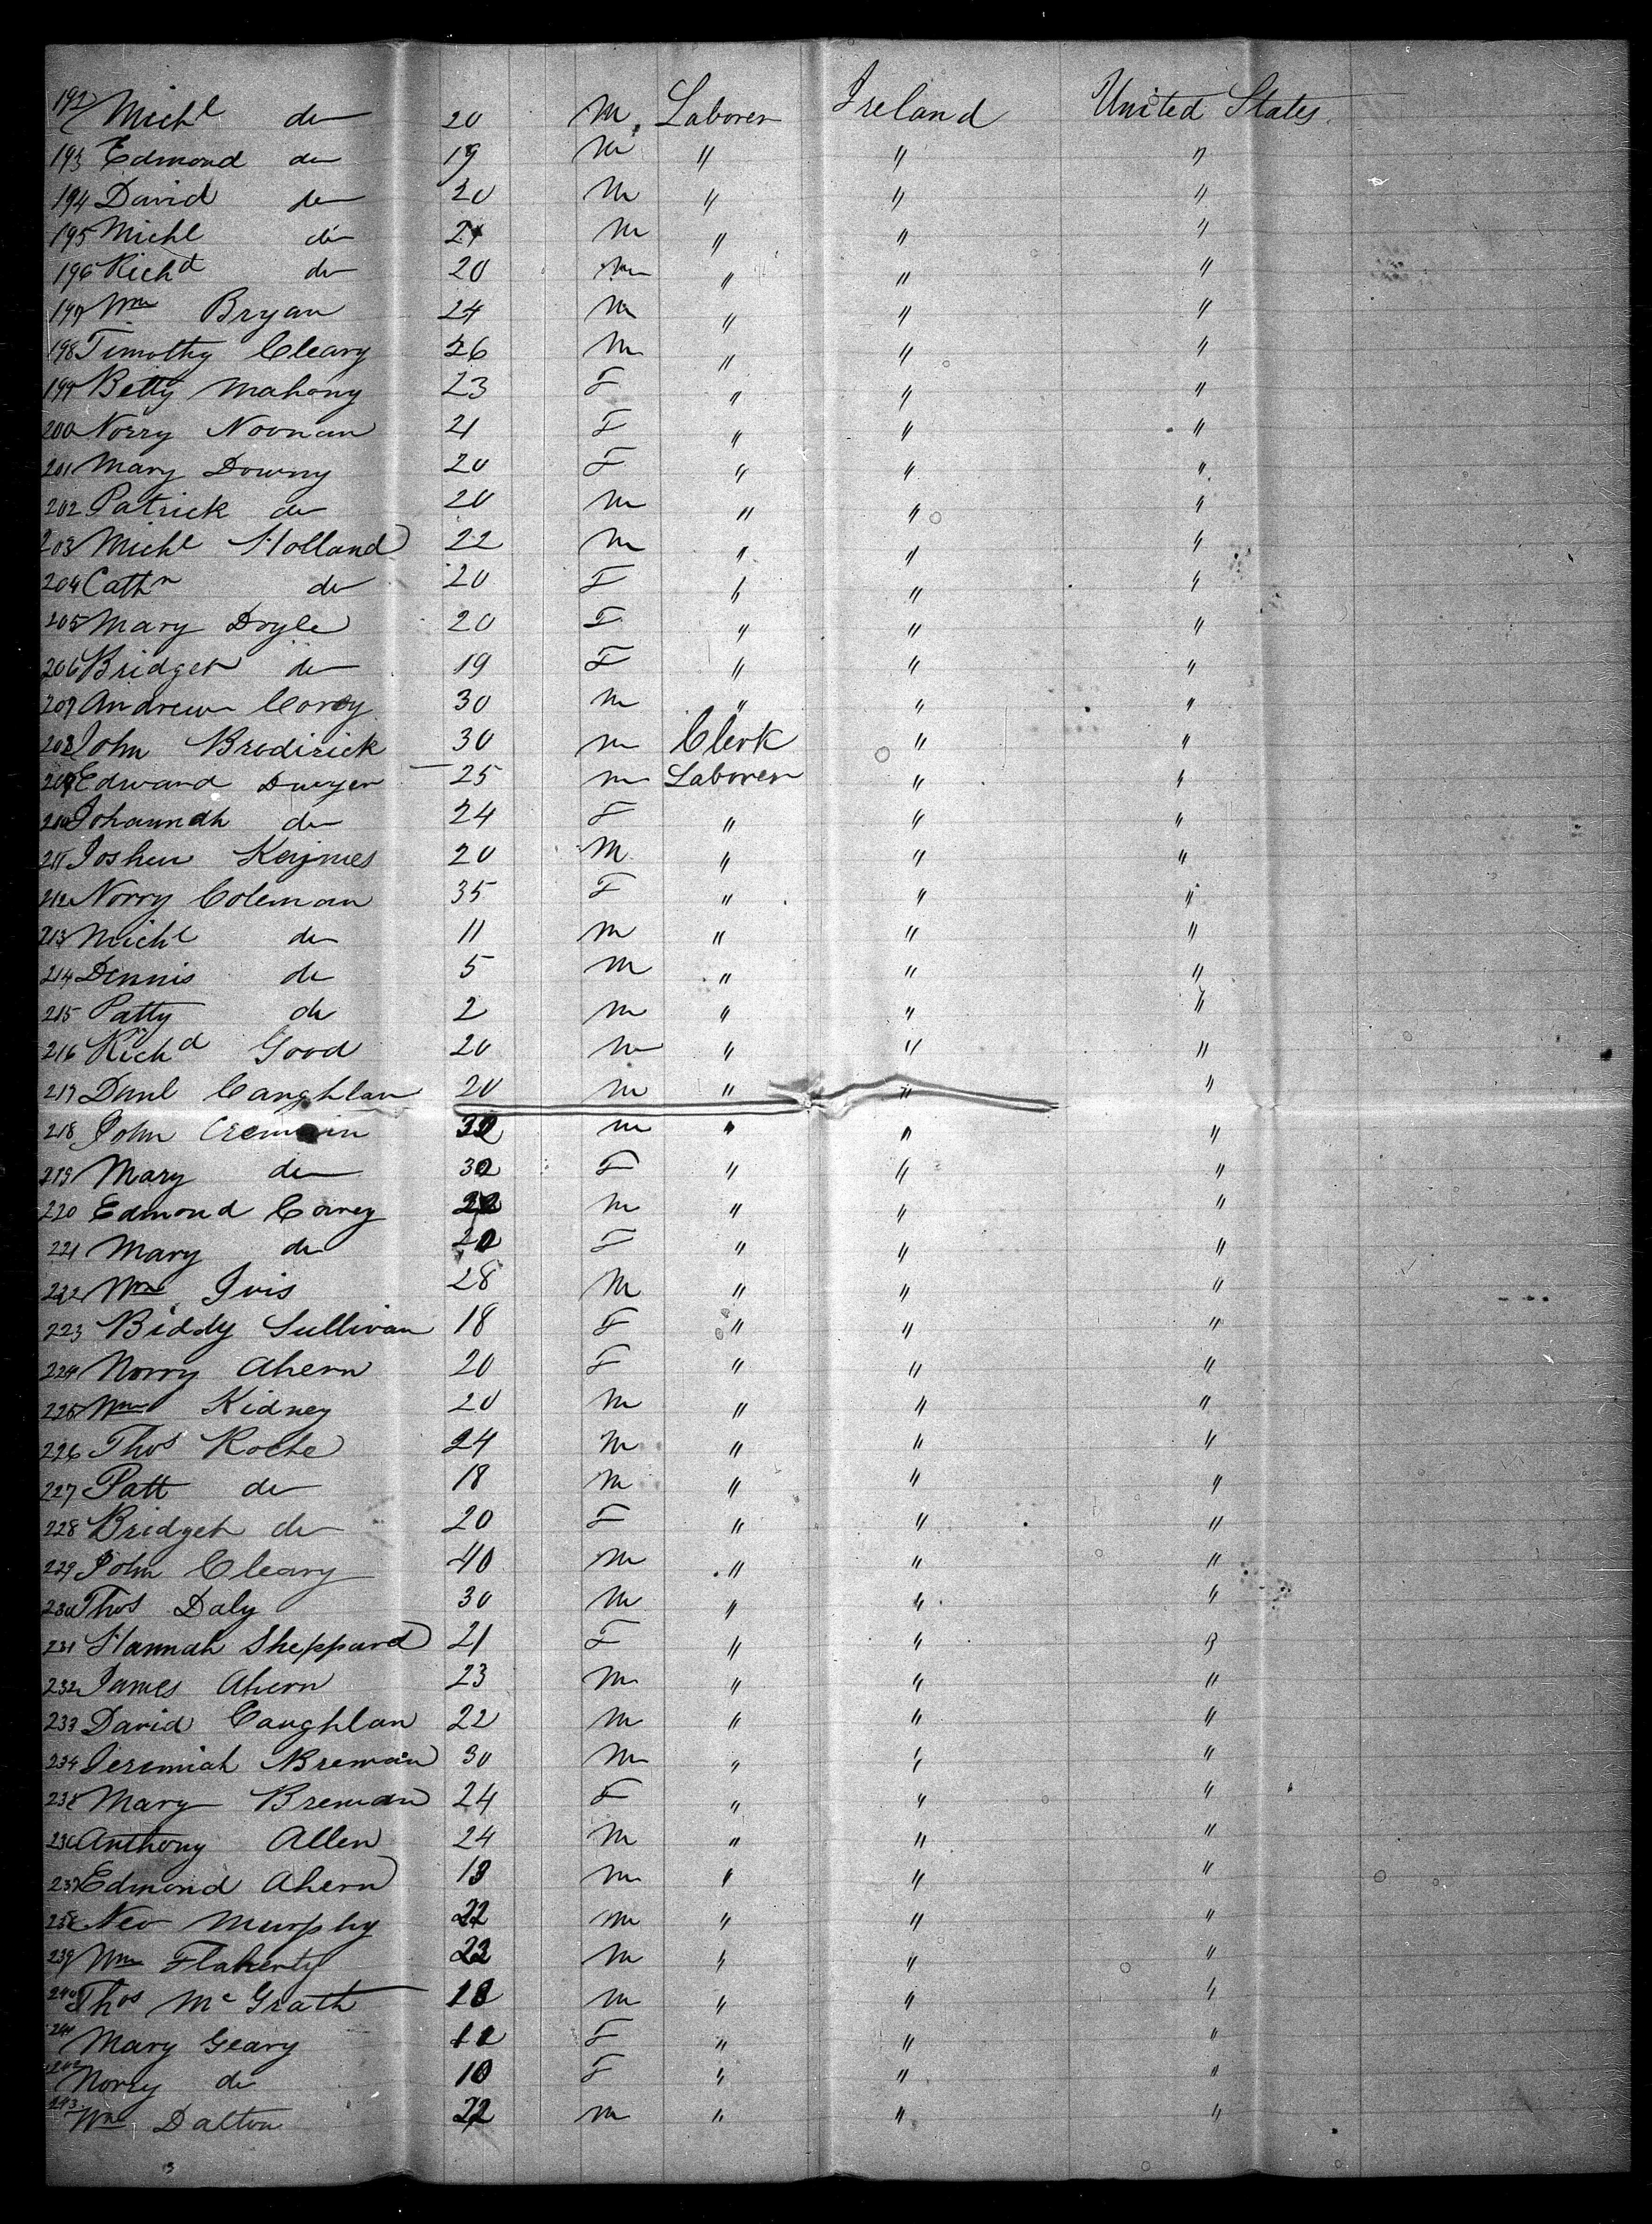 192 Michl do 20 M. Laborer Ireland United States.
193 Edmond do 19 M " " "
194 David do 20 M " " "
195 Michl do 21 M " " "
196 Richd do 20 M " " "
197 Wm Bryan 24 M " " "
198 Timothy Cleary 26 M " " "
199 Betty Mahony 23 F " " "
200 Norry Noonan 21 F " " "
201 Mary Downy 20 F " " "
202 Patrick do 20 M " " "
203 Michl Holland 22 M " " "
204 Cathn do 20 F " " "
205 Mary Doyle 20 F " " "
206 Bridget do 19 F " " "
207 Andrew Corey 30 M " " "
208 John Brodirick 30 M Clerk " "
209 Edward Dwyer 25 M Laborer " "
210 Johannah do 24 F " " "
211 Joshew 20 M " " "
212 Norry Coleman 35 F " " "
213 Michl do 11 M " " "
214 Dennis do 5 M " " "
215 Patty do 2 M " " "
216 Richd Good 20 M " " "
217 Danl Caughlan 20 M " " "
218 John M " " "
219 Mary do 30 F " " "
220 Edmond M " " "
221 Mary do 20 F " " "
222 Wm Ivis 28 M " " "
223 Biddy Sullivan 18 F " " "
224 Norry Ahern 20 F " " "
225 Wm Kidney 20 M " " "
226 Thos Roche 24 M " " "
227 Patt do 18 M " " "
228 Bridget do 20 F " " "
229 John Cleary 40 M " " "
230 Thos Daly 30 M " " "
231 Hannah Sheppard 21 F " " "
232 James Ahern 23 M " " "
233 David Caughlan 22 M " " "
234 Jeremiah Brenain 30 M " " "
235 Mary Brenan 24 F " " "
236 Anthony Allen 24 M " " "
237 Edmond Ahern M " " "
238 Murphy 22 M " " "
239 Wm Flaherty M " " "
240 Thos McGrath 18 M " " "
241 Mary Geary F " " "
242 Norry do 10 F " " "
243 Wm Dalton 22 M " " "